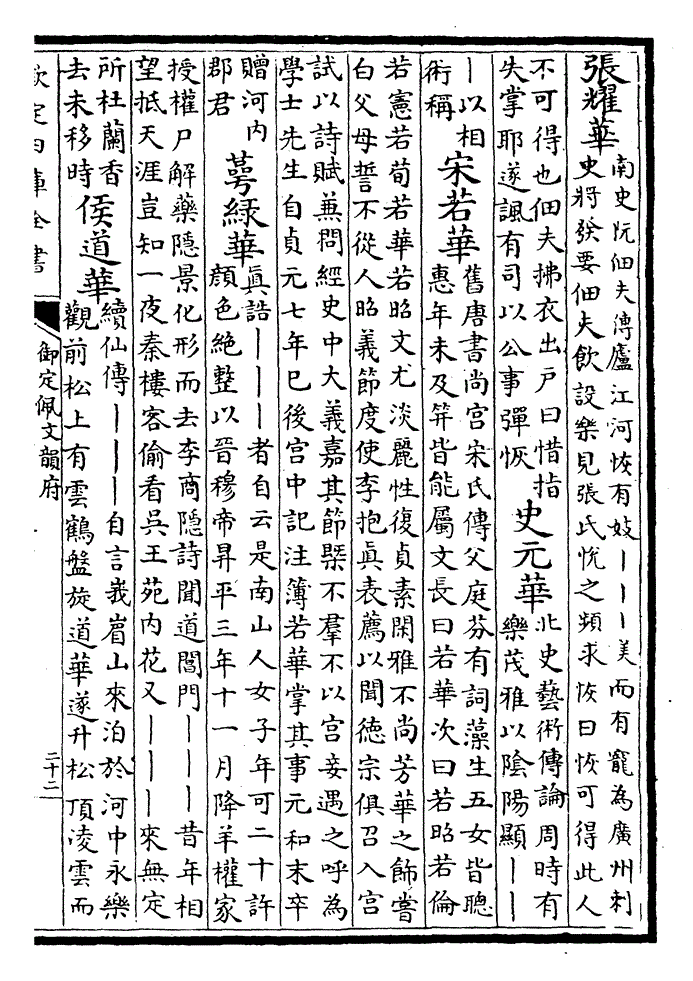 張耀華
南史阮佃夫傳廬江河恢有妓｜｜｜美而有寵為廣州刺
史將發要佃夫飲設樂見張氏恱之頻求恢曰恢可得此人
不可得也佃夫拂衣出戶曰惜指
失掌耶遂諷有司以公事彈恢
史元華
北史藝術傳論周時有
樂茂雅以陰陽顯｜｜
｜以相
術稱
宋若華
舊唐書尚宮宋氏傳父庭芬有詞藻生五女皆聰
惠年未及笄皆能屬文長曰若華次曰若昭若倫
若憲若荀若華若昭文尤淡麗性復貞素閑雅不尚芳華之飾嘗
白父母誓不從人昭義節度使李抱眞表薦以聞德宗俱召入宮
試以詩賦兼問經史中大義嘉其節槩不羣不以宮妾遇之呼為
學士先生自貞元七年已後宮中記注簿若華掌其事元和末卒
贈河內
郡君
萼綠華
眞誥｜｜｜者自云是南山人女子年可二十許
顏色絕整以晉穆帝昇平三年十一月降羊權家
授權尸解藥隱景化形而去李商隱詩聞道閶門｜｜｜昔年相
望抵天涯豈知一夜秦樓客偷看吳王苑內花又｜｜｜來無定
所杜蘭香
去未移時
侯道華
續仙傳｜｜｜自言峩眉山來泊於河中永樂
觀前松上有雲鶴盤旋道華遂升松頂凌雲而
欽定四庫全書
御定佩文韻府
二十二